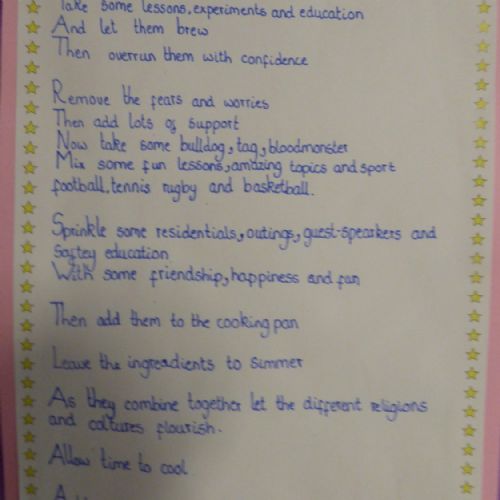 Take some lessons, experiments and education
And let them brew
Then overrun them with confidence
Remove the fears and worries
Then add lots of support
Now take some bulldog, tag, bloodmonster
Mix some fun lessons, amazing topics and sport
football, tennis rugby and basketball.
Sprinkle some residentials, outings, guest-spearkers and
Saftey education
With some friendship, happiness and fun
Then add them to the cooking pan
Leave the ingredients to simmer
As they combine together let the different religions
and caltures flourish.
Allow time to cool